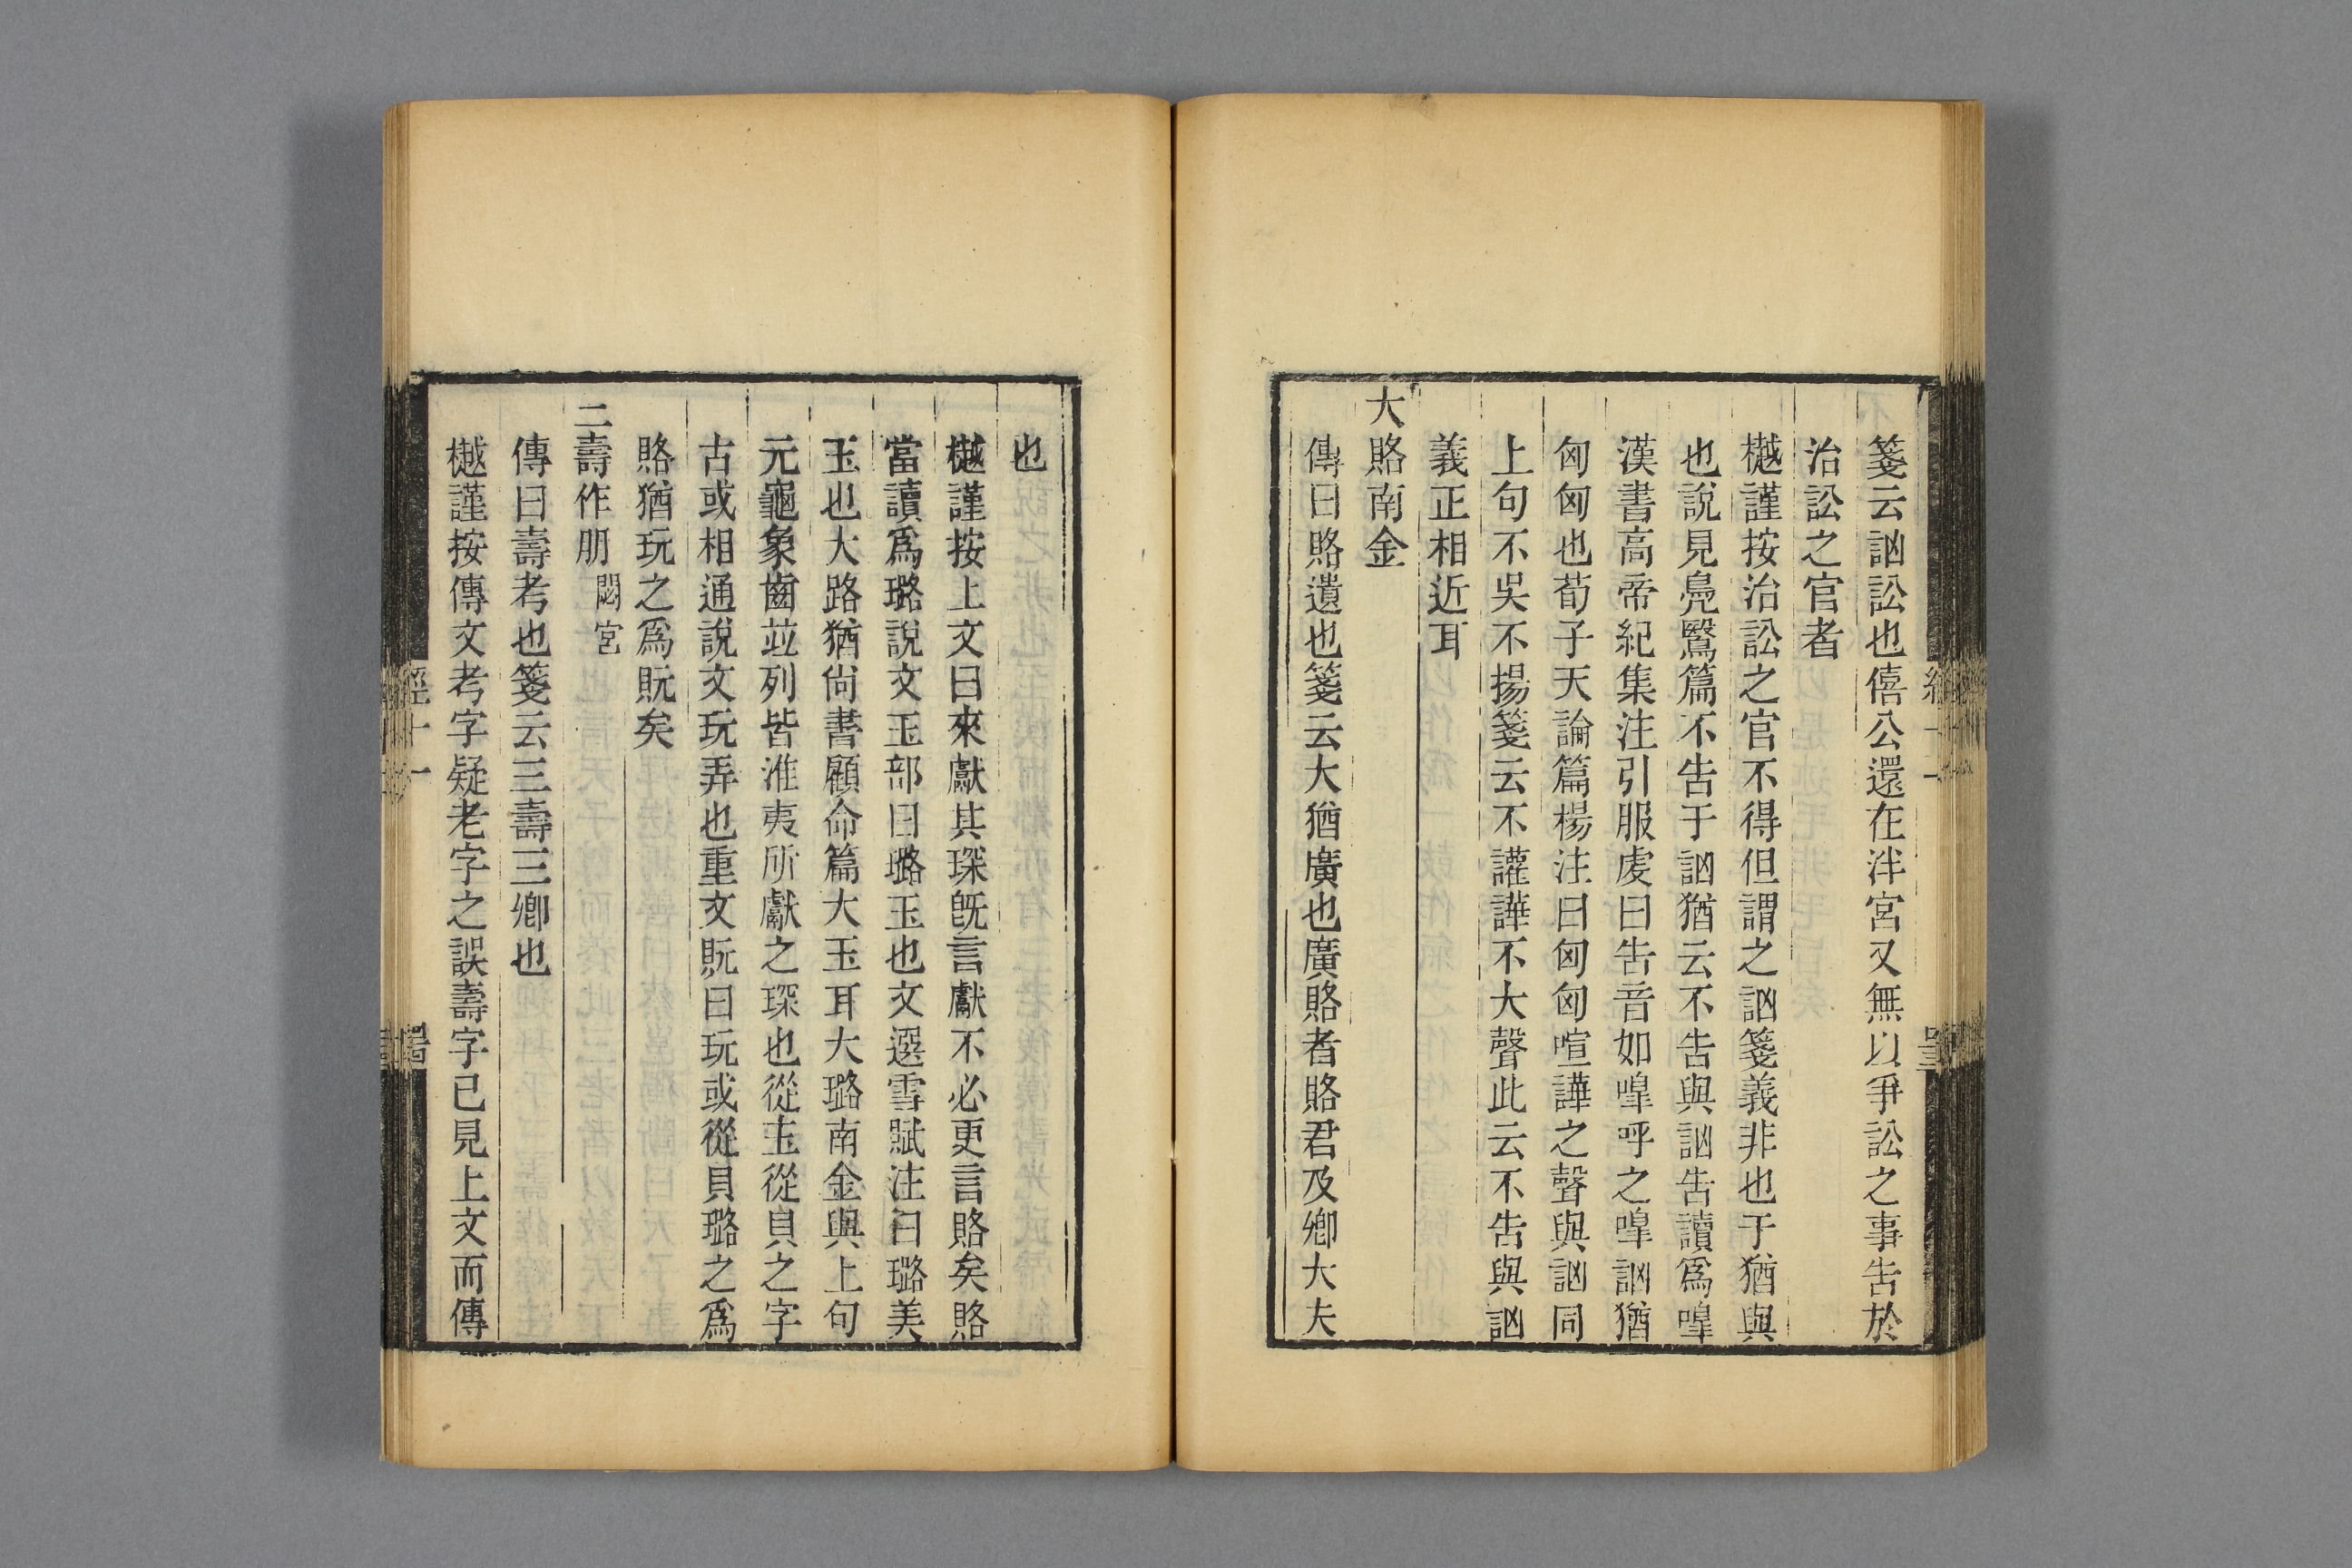 箋云訩訟也僖公還在泮宮又無以爭訟之事告於
治訟之官者
樾謹按治訟之官不得但謂之訩箋義非也于猶與
也說見鳧鷖篇不告于訩猶云不告與訩告讀爲嘷
漢書高帝紀集注引服虔曰告音如嘷呼之嘷訩猶
匈匈也荀子天論篇楊注曰匈匈喧譁之聲與訩同
上句不吳不揚箋云不讙譁不大聲此云不告與訩
義正相近耳
大賂南金
傳曰賂遺也箋云大猶廣也廣賂者賂君及卿大夫
也
樾謹按上文曰來獻其琛旣言獻不必更言賂矣賂
當讀爲璐說文玉部曰璐玉也文選雪賦注曰璐美
玉也大路猶尙書顧命篇大玉耳大璐南金與上句
元龜象齒竝列皆淮夷所獻之琛也從玉從貝之字
古或相通說文玩弄也重文貦曰玩或從貝璐之爲
賂猶玩之爲貦矣
三壽作朋 閟宮
傳曰壽考也箋云三壽三卿也
樾謹按傳文考字疑老字之誤壽字已見上文而傳
經十一